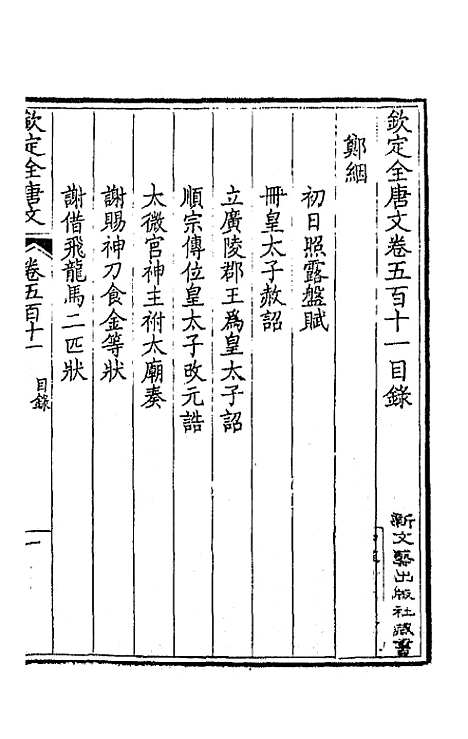 欽定全唐文卷五百十一目錄
鄭絪
初日照露盤賦
冊皇太子赦詔
立廣陵郡王爲皇太子詔
順宗傳位皇太子改元誥
太微宮神主祔太廟奏
謝賜神刀食金等狀
謝借飛龍馬二匹狀
欽定全唐文
卷五百十一 目錄
一
新文藝出版社藏書